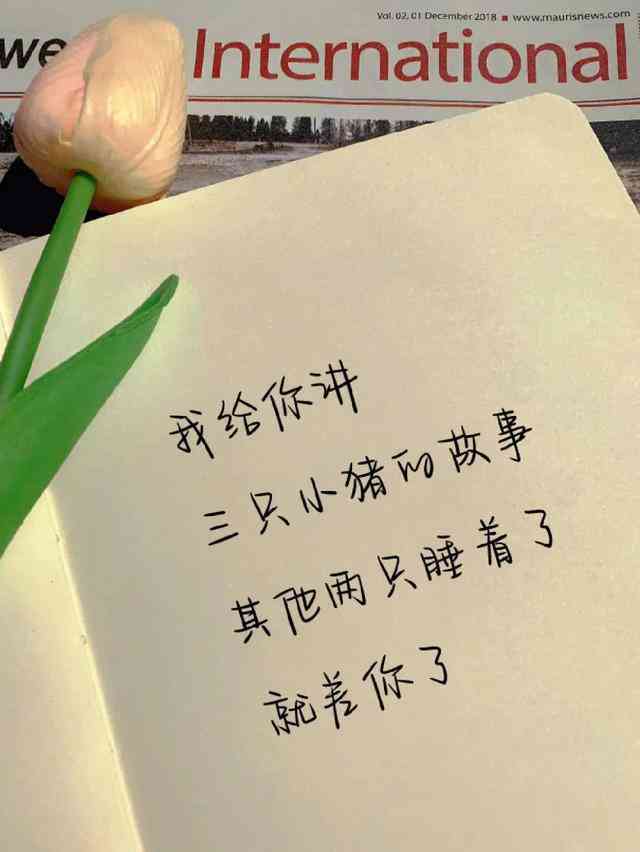 Vol. 02, 01 December 2018 ■ www.maurisnews.com
we International
我给你讲
三只小猪的故事
其他两只睡着了
就差你了